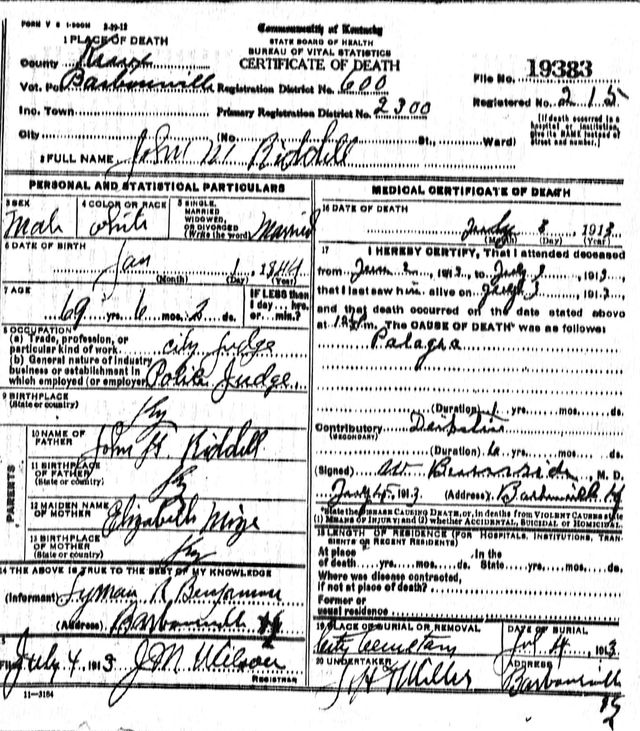 FORM V S 1-500M 3-29-12
Commonwealth of Kentucky
STATE BOARD OF HEALTH
BUREAU OF VITAL STATISTICS
CERTIFICATE OF DEATH
1 PLACE OF DEATH
County Knox
Vot. Pct Barbourville Registration District No. 600
File No. 19383
Inc. Town Primary Registration District No. 2300
Registered No. 215
City (No. St., Ward)
[If death occurred in a hospital or institution, give its NAME instead of street and number.]
2 FULL NAME John M Riddell
PERSONAL AND STATISTICAL PARTICULARS
3 SEX Male
4 COLOR OR RACE White
5 SINGLE, MARRIED WIDOWED, OR DIVORCED (Write the word) Married
6 DATE OF BIRTH Jan 1, 1844
(Month) (Day) (Year)
7 AGE 69 yrs. 6 mos. 2 ds.
IF LESS than 1 day... hrs. or... min.?
8 OCCUPATION
(a) Trade, profession, or particular kind of work City Judge
(b) General nature of industry business or establishment in which employed (or employer) Police Judge
9 BIRTHPLACE (State or country) Ky
PARENTS
10 NAME OF FATHER John H. Riddell
11 BIRTHPLACE OF FATHER (State or country) Ky
12 MAIDEN NAME OF MOTHER Elizabeth Mize
13 BIRTHPLACE OF MOTHER (State or country) Ky
14 THE ABOVE IS TRUE TO THE BEST OF MY KNOWLEDGE
(Informant) Lyman R
(Address) Barbourville Ky
15
Filed July 4, 1913 J M Wilson
REGISTRAR
11-3184
MEDICAL CERTIFICATE OF DEATH
16 DATE OF DEATH July 3, 1913
(Month) (Day) (Year)
17 I HEREBY CERTIFY, That I attended deceased
from June, 1913, to July 3, 1913,
that I last saw him alive on July 3, 1913,
and that death occurred on the date stated above
at m. The CAUSE OF DEATH* was as follows:
Palagra
(Duration) 1 yrs. mos. ds.
Contributory (SECONDARY)
(Duration) yrs. mos. ds.
(Signed) M. D.
July 1913 (Address) Barbourville Ky
*State the DISEASE CAUSING DEATH, or, in deaths from VIOLENT CAUSES state (1) MEANS OF INJURY; and (2) whether ACCIDENTAL, SUICIDAL or HOMICIDAL.
18 LENGTH OF RESIDENCE (FOR HOSPITALS, INSTITUTIONS, TRANSIENTS OR RECENT RESIDENTS)
At place of death yrs. mos. ds. In the State yrs. mos. ds.
Where was disease contracted, if not at place of death?
Former or usual residence
19 PLACE OF BURIAL OR REMOVAL City Cemetery
DATE OF BURIAL Jul 4, 1913
20 UNDERTAKER J H Miller
ADDRESS Barbourville Ky